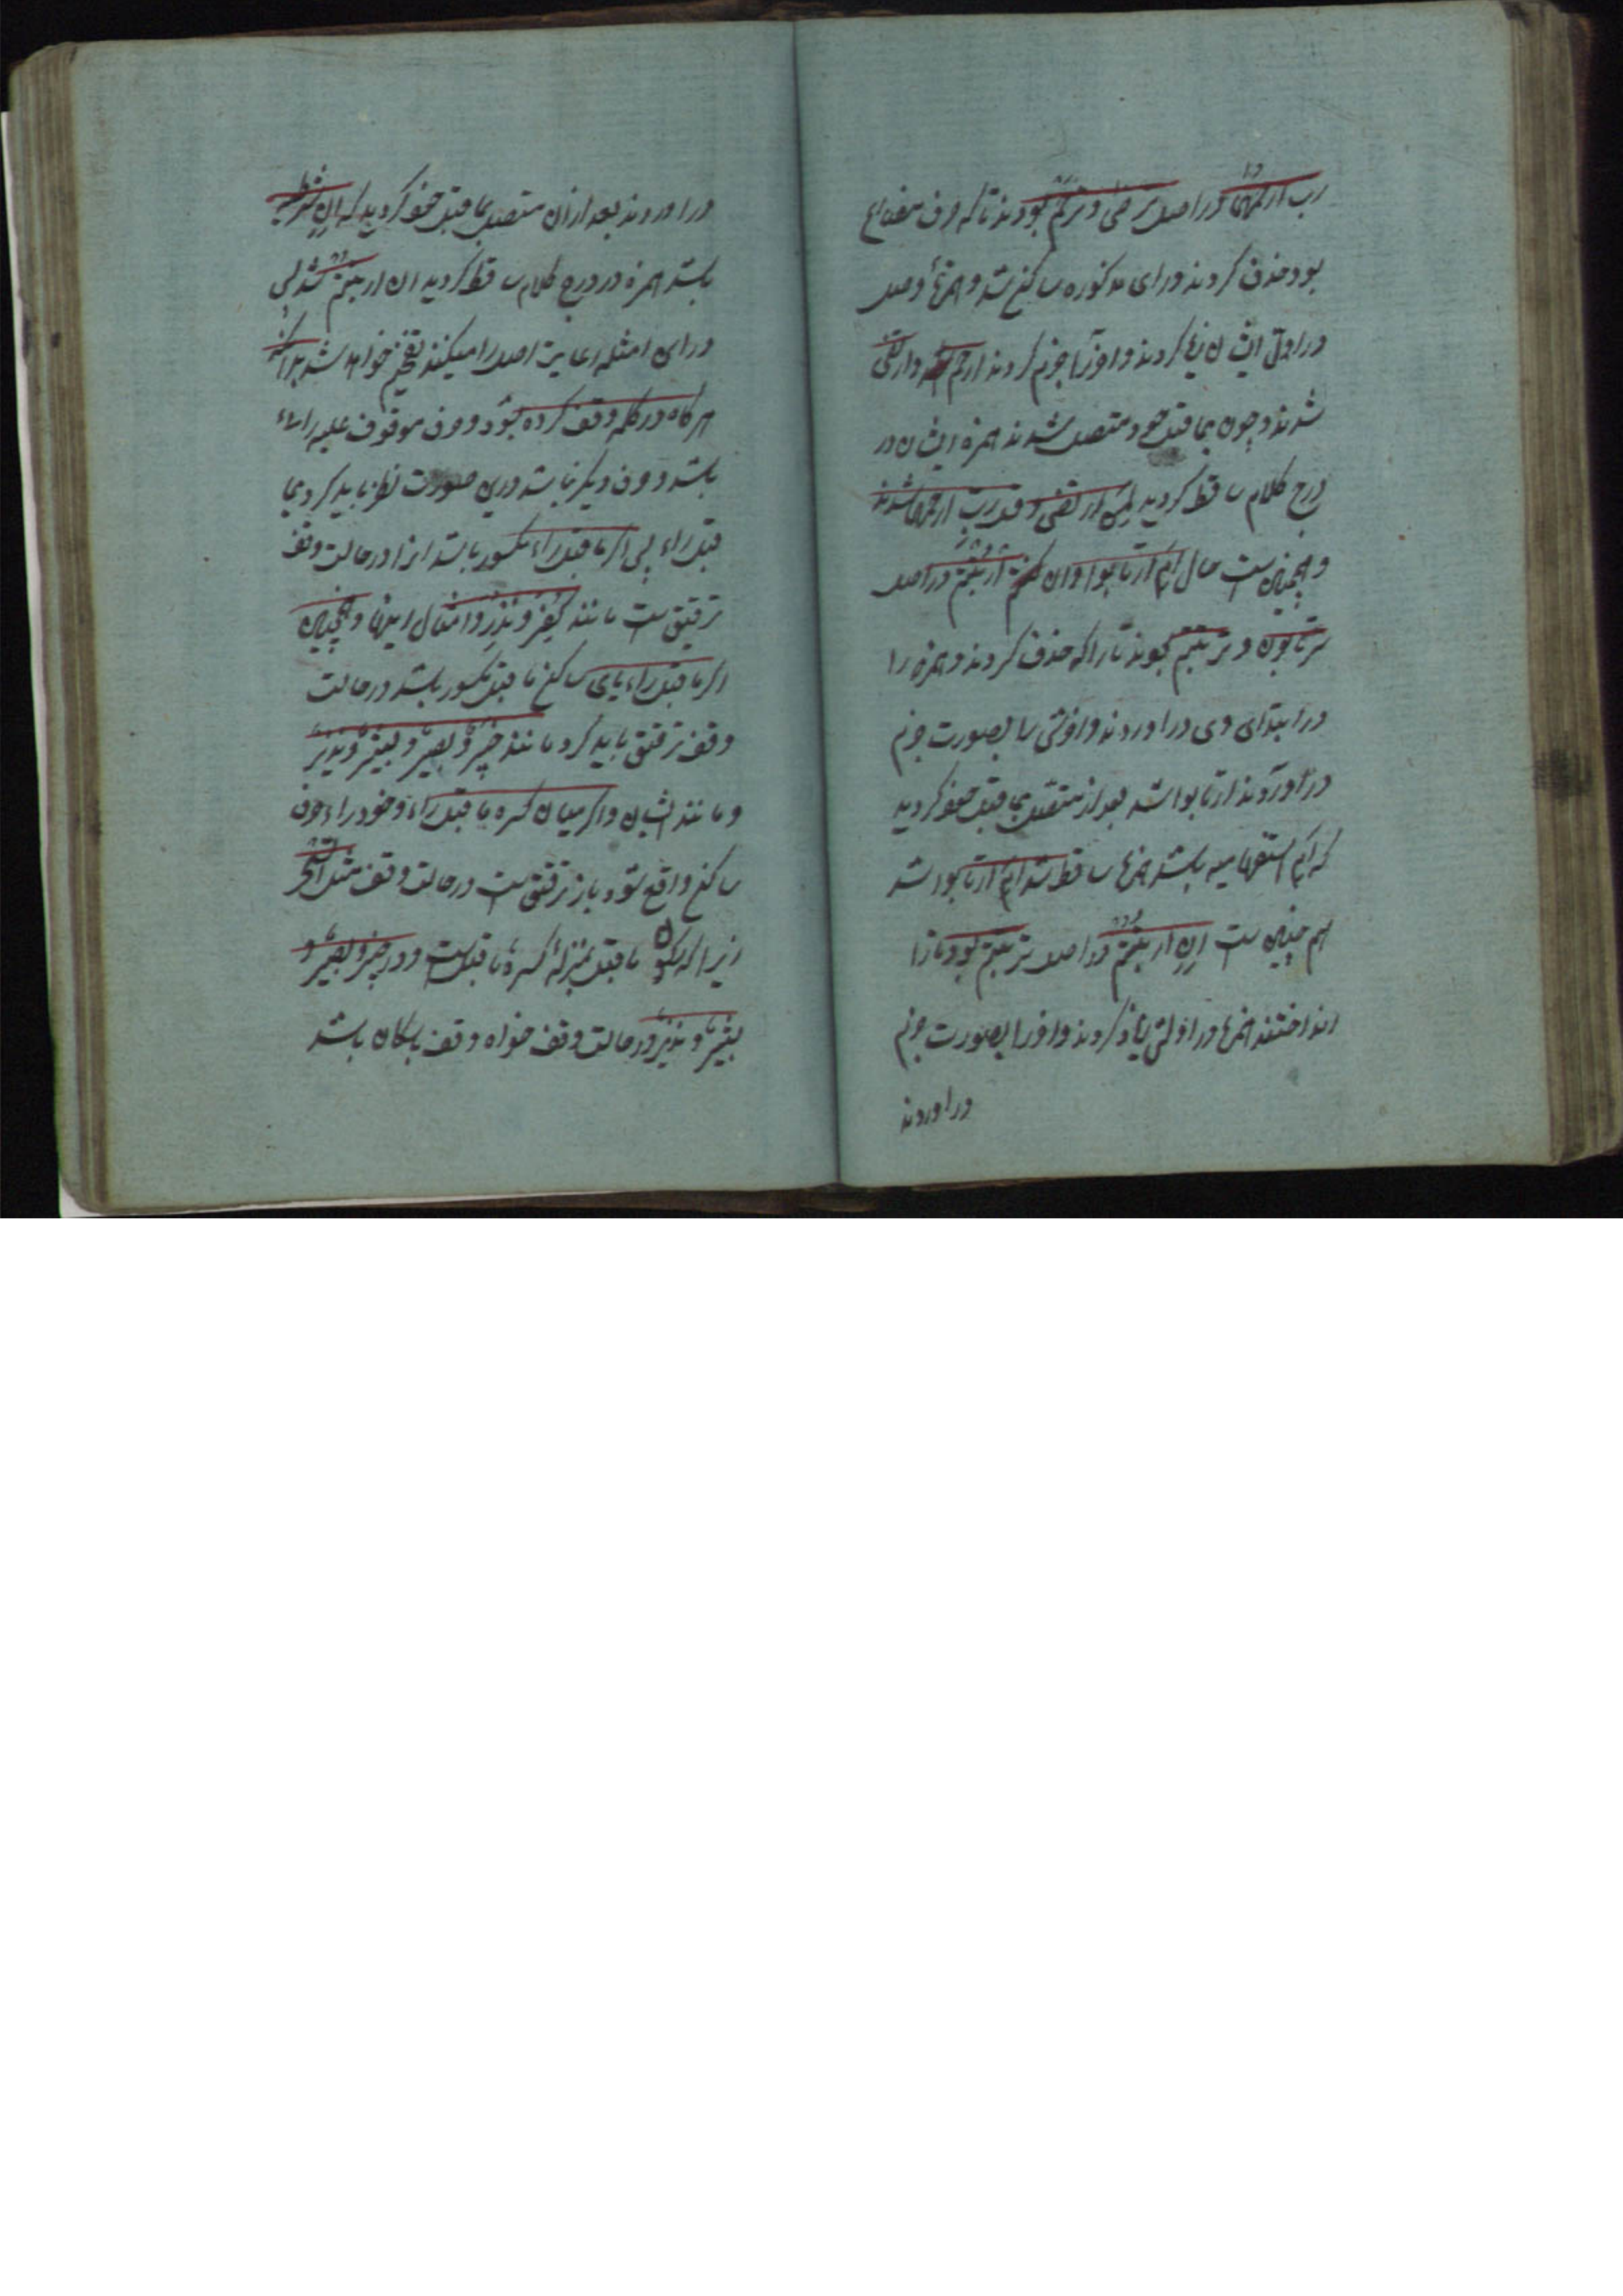 رب ارحمهما در اصل ترضی و ترحم بودند تا که حرف مضارع
بود حذف کردند و رای مذکوره ساکن شد و همزهٔ وصل
در اول ایشان کردند و آخر را جزم کردند ارحم و ارتضی
شدند و چون بما قبل خود متصل شدند همزه ایشان در
درج کلام ساقط کردید لمن ارتضی و قل رب ارحمهما شدند
و همچنین ست حال ام ارتابوا و ان ارتبتم در اصل
ترتابون و ترتبتم بودند تا را که حذف کردند و همزه را
در ابتدای وی در اوردند و آخرش را بصورت جزم
در آوردند ارتابوا شد بعد از متصل بما قبل خود کردید
که ام استفهامیه باشد همزه ساقط شد ام ارتابوا شد
هم چنین ست ان ارتبتم در اصل ترتبتم بود تا را
انداختند همزه در اولش کردند و آخر را بصورت جزم
در اوردند
در اوردند بعد ازان متصل بما قبل خود کردید که ان شرطیه
باشد همزه در درج کلام ساقط کردید ان ارتبتم شد پس
در این امثله رعایت اصل را میکنند تفخیم خواهد شد بدانکه
هرگاه در کلمه وقف کرده شود و حرف موقوف علیه راء
باشد و حرف دیگر نباشد درین صورت نظر باید کرد بما
قبل راء پس اگر ما قبل راء مکسور باشد انرا در حالت وقف
ترقیق ست مانند کفر و نذر و امثال اینها و همچنین
اگر ما قبل راء یای ساکن ما قبل مکسور باشد در حالت
وقف ترقیق باید کرد مانند خبیر و بصیر و بشیر و نذیر
و مانند ایشان و اگر میان کسره ما قبل راء و خود راء حرف
ساکن واقع شود باز ترقیق ست در حالت وقف مثل
زیرا که سکون ما قبل بمنزلهٔ کسرهٔ ما قبل ست و در خبیر و بصیر و
بشیر و نذیر در حالت وقف خواه وقف باسکان باشد